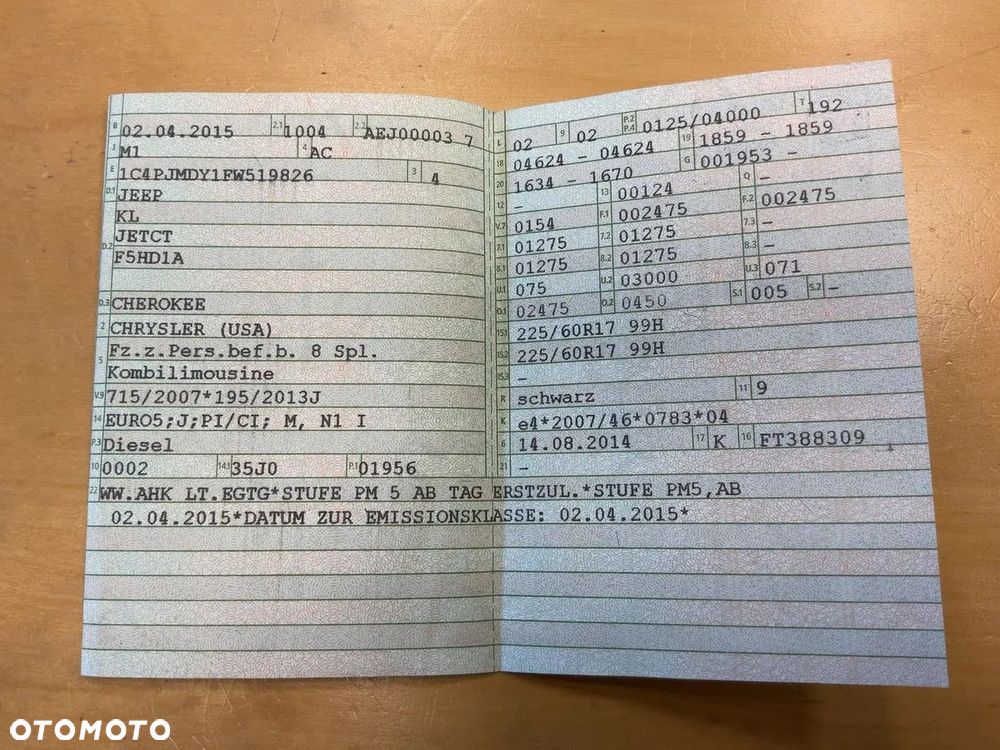 B 02.04.2015 2.1 1004 2.2 AEJ00003 7
J M1 4 AC
E 1C4PJMDY1FW519826 3 4
D.1 JEEP
KL
D.2 JETCT
F5HD1A
D.3 CHEROKEE
2 CHRYSLER (USA)
5 Fz.z.Pers.bef.b. 8 Spl.
Kombilimousine
V.9 715/2007*195/2013J
14 EURO5;J;PI/CI; M, N1 I
P.3 Diesel
10 0002 14.1 35J0 P.1 01956
L 02 9 02 P.2 P.4 0125/04000 T 192
18 04624 - 04624 19 1859 - 1859
20 1634 - 1670 G 001953 -
12 - 13 00124 Q -
V.7 0154 F.1 002475 F.2 002475
7.1 01275 7.2 01275 7.3 -
8.1 01275 8.2 01275 8.3 -
U.1 075 U.2 03000 U.3 071
O.1 02475 O.2 0450 S.1 005 S.2 -
15.1 225/60R17 99H
15.2 225/60R17 99H
15.3 -
R schwarz 11 9
K e4*2007/46*0783*04
6 14.08.2014 17 K 16 FT388309
21 -
22 WW.AHK LT.EGTG*STUFE PM 5 AB TAG ERSTZUL.*STUFE PM5,AB
02.04.2015*DATUM ZUR EMISSIONSKLASSE: 02.04.2015*
OTOMOTO